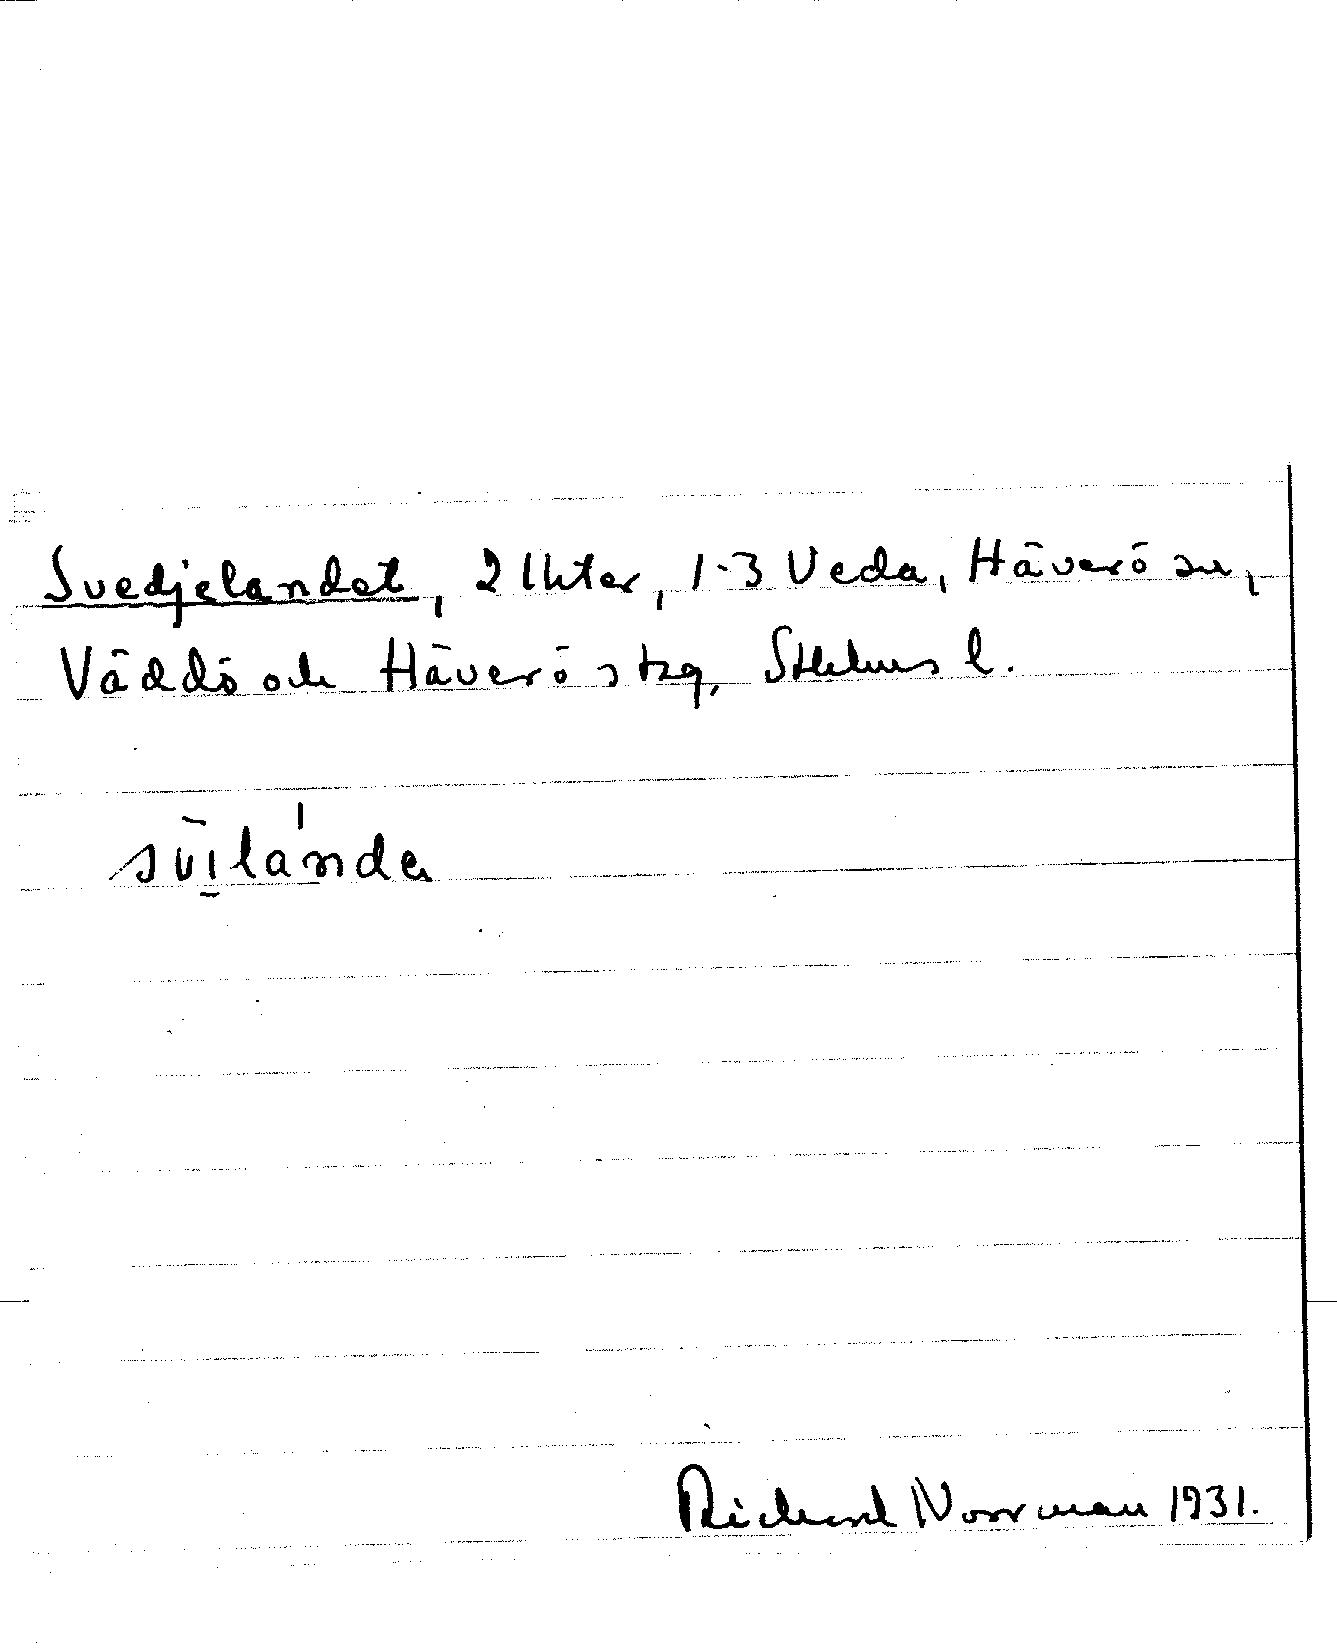 Svedjelandet, 2 Ihter, 1-3 Veda, Häverö sn,
Väddö och Häverö skg, Sthlms l.
svīlánde
Richard Norrman 1931.